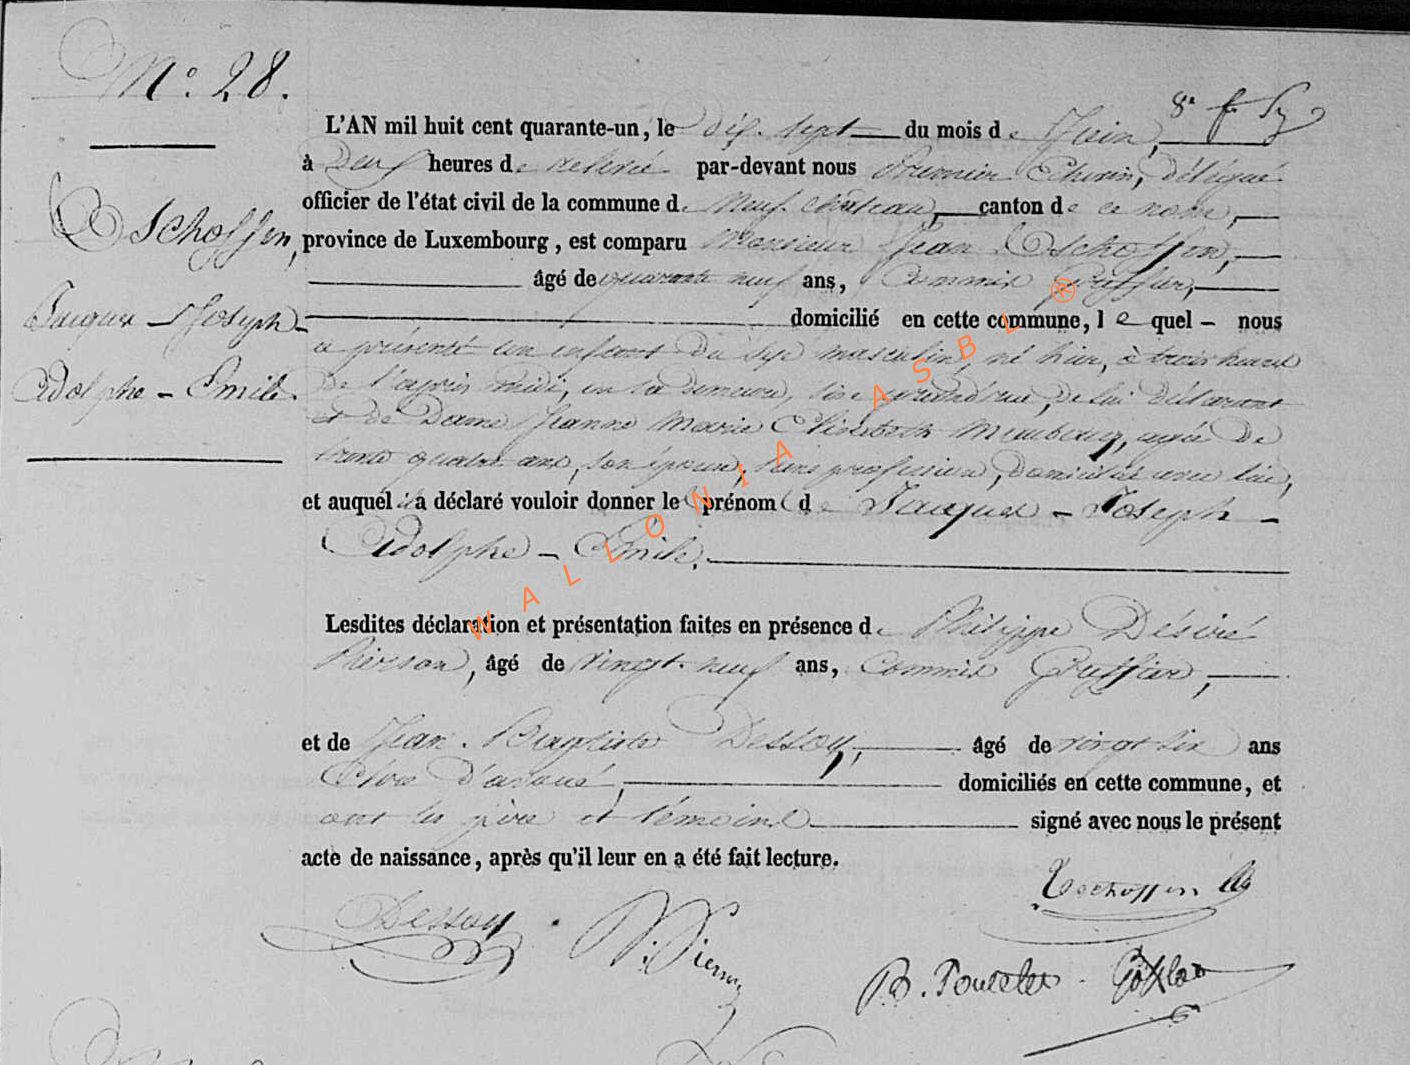 N.° 28.
L'AN mil huit cent quarante-un, le dix-sept du mois de Juin,
à Deux heures de relevé par-devant nous Premier Echevin, délégué
officier de l'état civil de la commune de Neufchâteau, canton de ce nom,
Tschoffen, province de Luxembourg, est comparu Monsieur Jean Tschoffen,
âgé de quarante neuf ans, Commis Greffier,
Jacques - Joseph - domicilié en cette commune, lequel - nous
a présenté un enfant du sexe masculin, né hier, à trois heures
Adolphe - Emile. de l'après midi, en sa demeure, sise grand'rue, de lui déclarant
et de Dame Jeanne Marie Elisabeth, agée de
trente quatre ans, son épouse, sans profession, domiciliée avec lui,
et auquel il a déclaré vouloir donner les prénoms de Jacques - Joseph -
Adolphe - Emile.
Lesdites déclaration et présentation faites en présence de Philippe Désiré
Pierson, âgé de vingt-neuf ans, Commis Greffier,
et de Jean-Baptiste Dessoy, âgé de vingt six ans
Clerc d'avoué, domiciliés en cette commune, et
ont les père et témoins signé avec nous le présent
acte de naissance, après qu'il leur en a été fait lecture.
Tschoffen
Dessoy
P. Pierson
WALLONIA ASBL ®